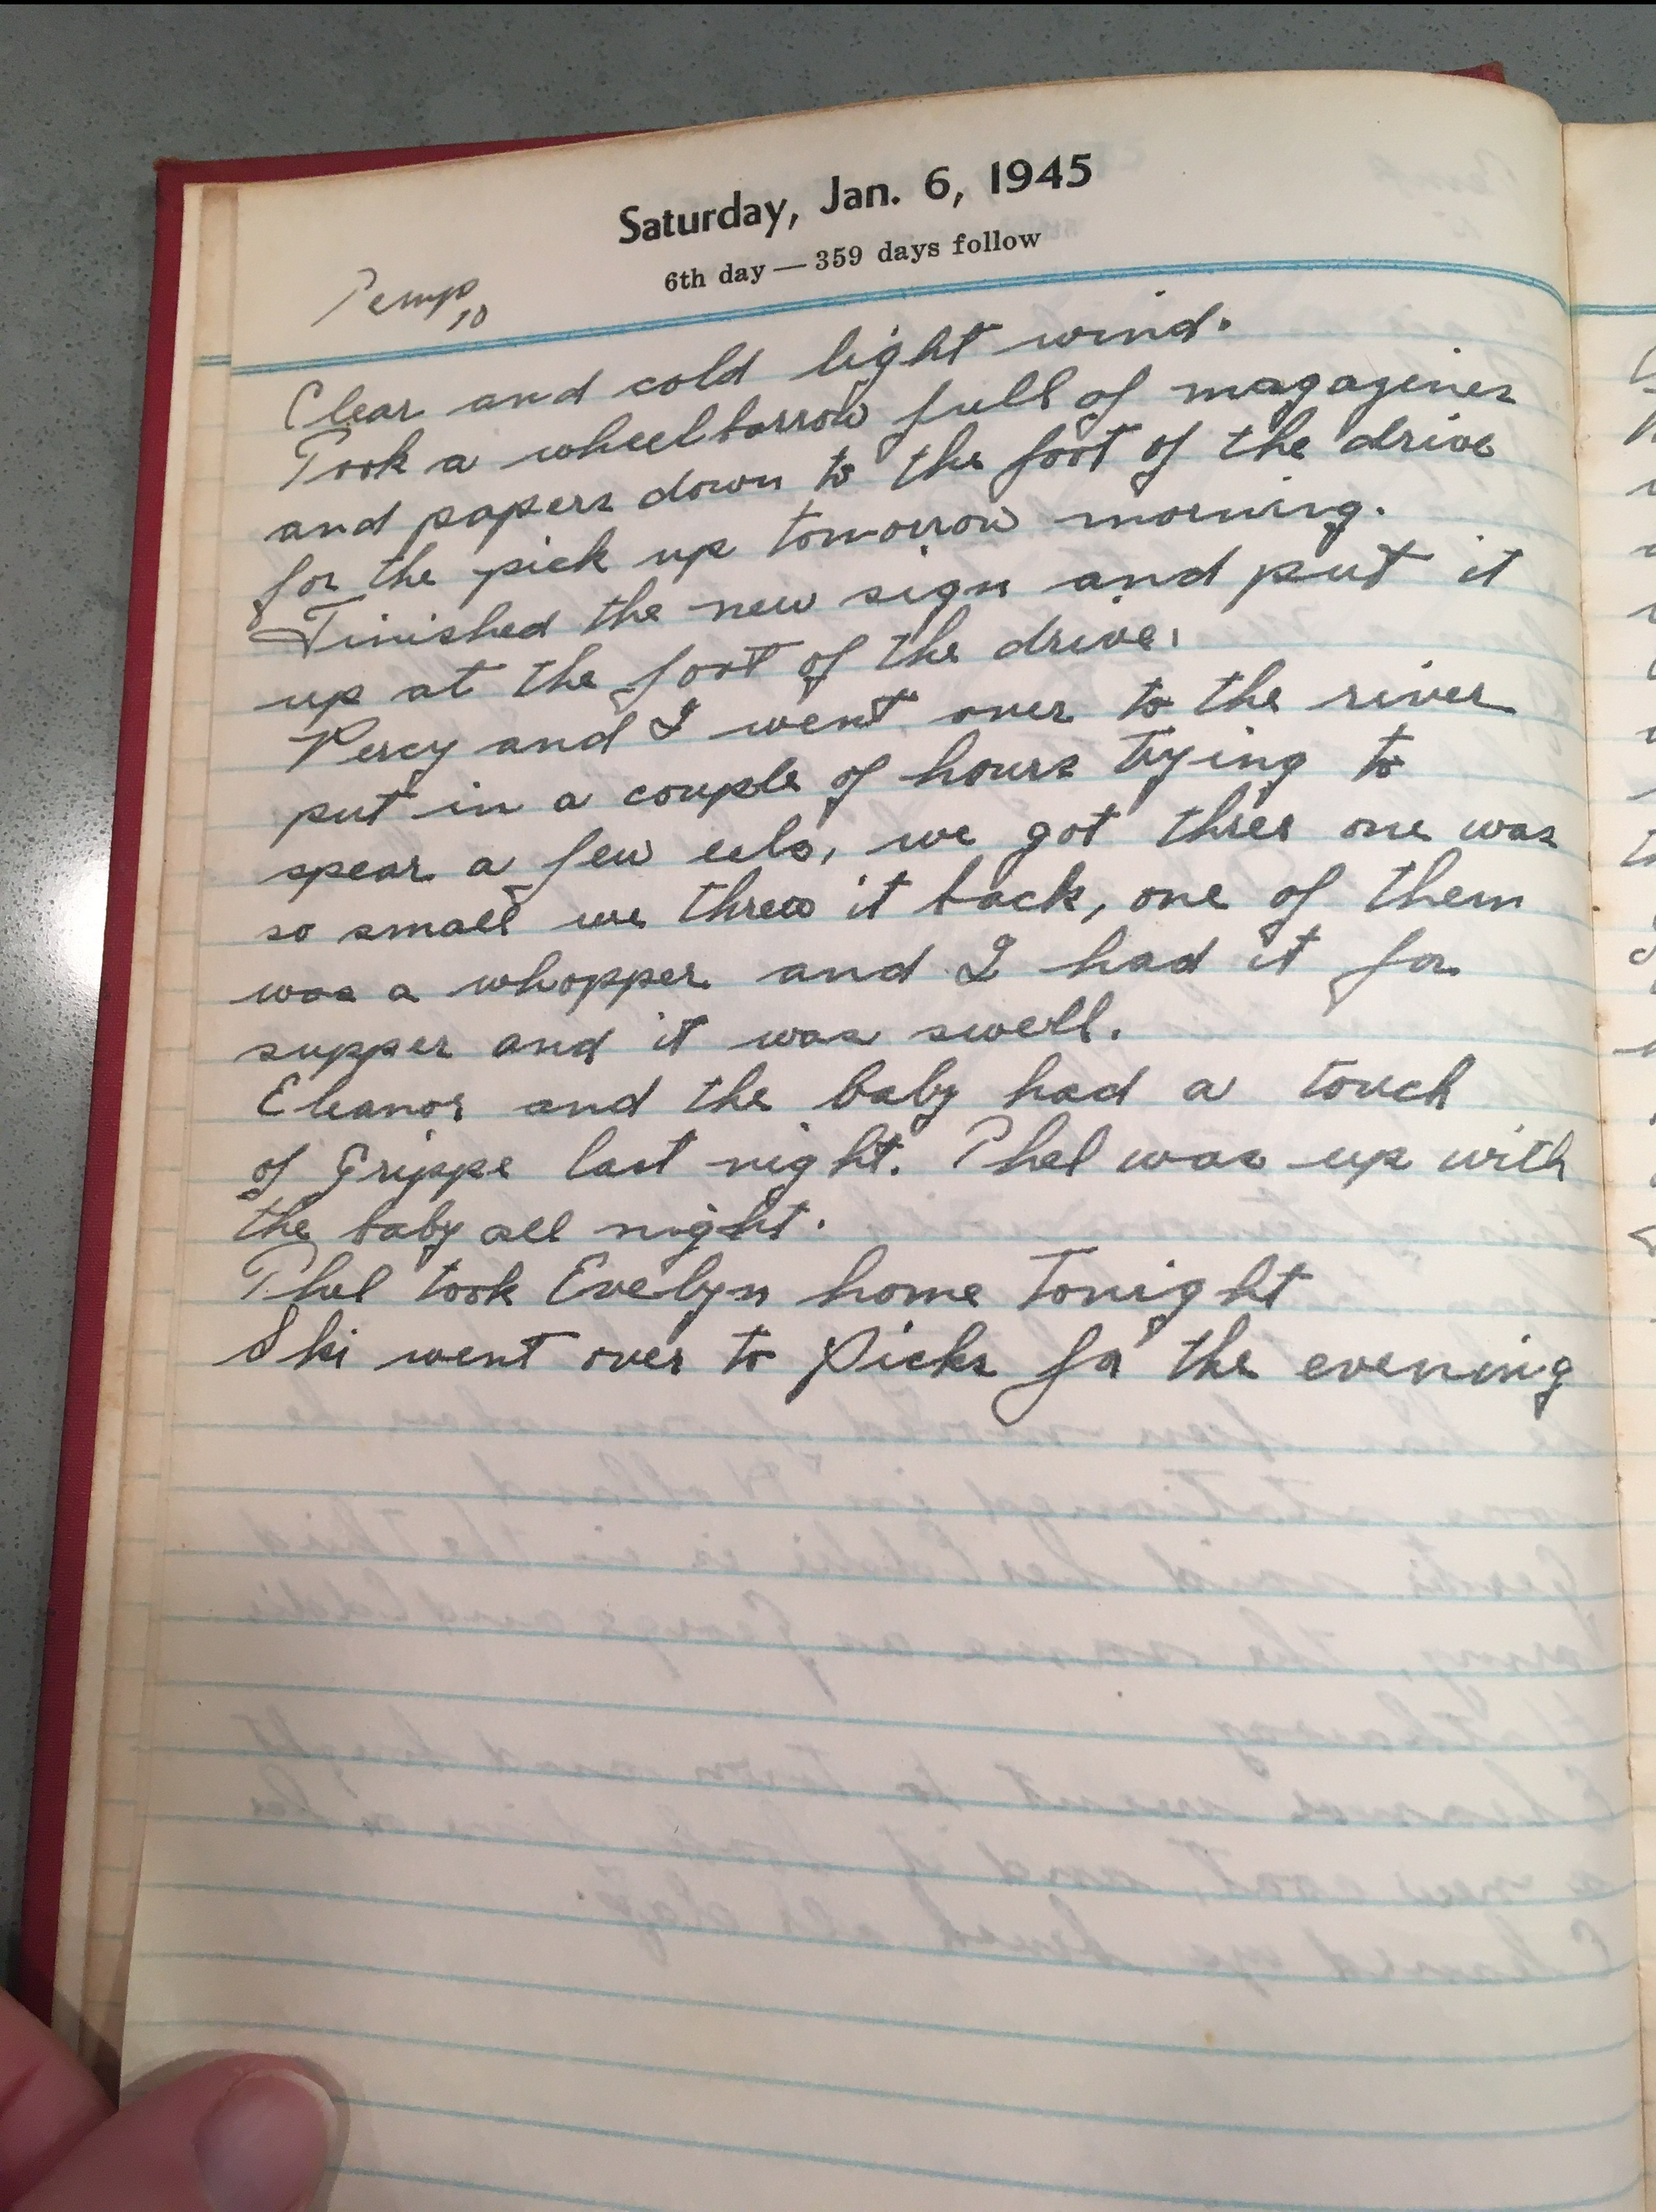 Saturday, Jan. 6, 1945
6th day — 359 days follow
Temp 10
Clear and cold light wind.
Took a wheelbarrow full of magazines
and papers down to the foot of the drive
for the pick up tomorrow morning.
Finished the new sign and put it
up at the foot of the drive.
Percy and I went over to the river
put in a couple of hours trying to
spear a few eels, we got three one was
so small we threw it back, one of them
was a whopper and I had it for
supper and it was swell.
Eleanor and the baby had a touch
of Grippe last night. Phel was up with
the baby all night.
Phel took Evelyn home tonight
Ski went over to Picks for the evening